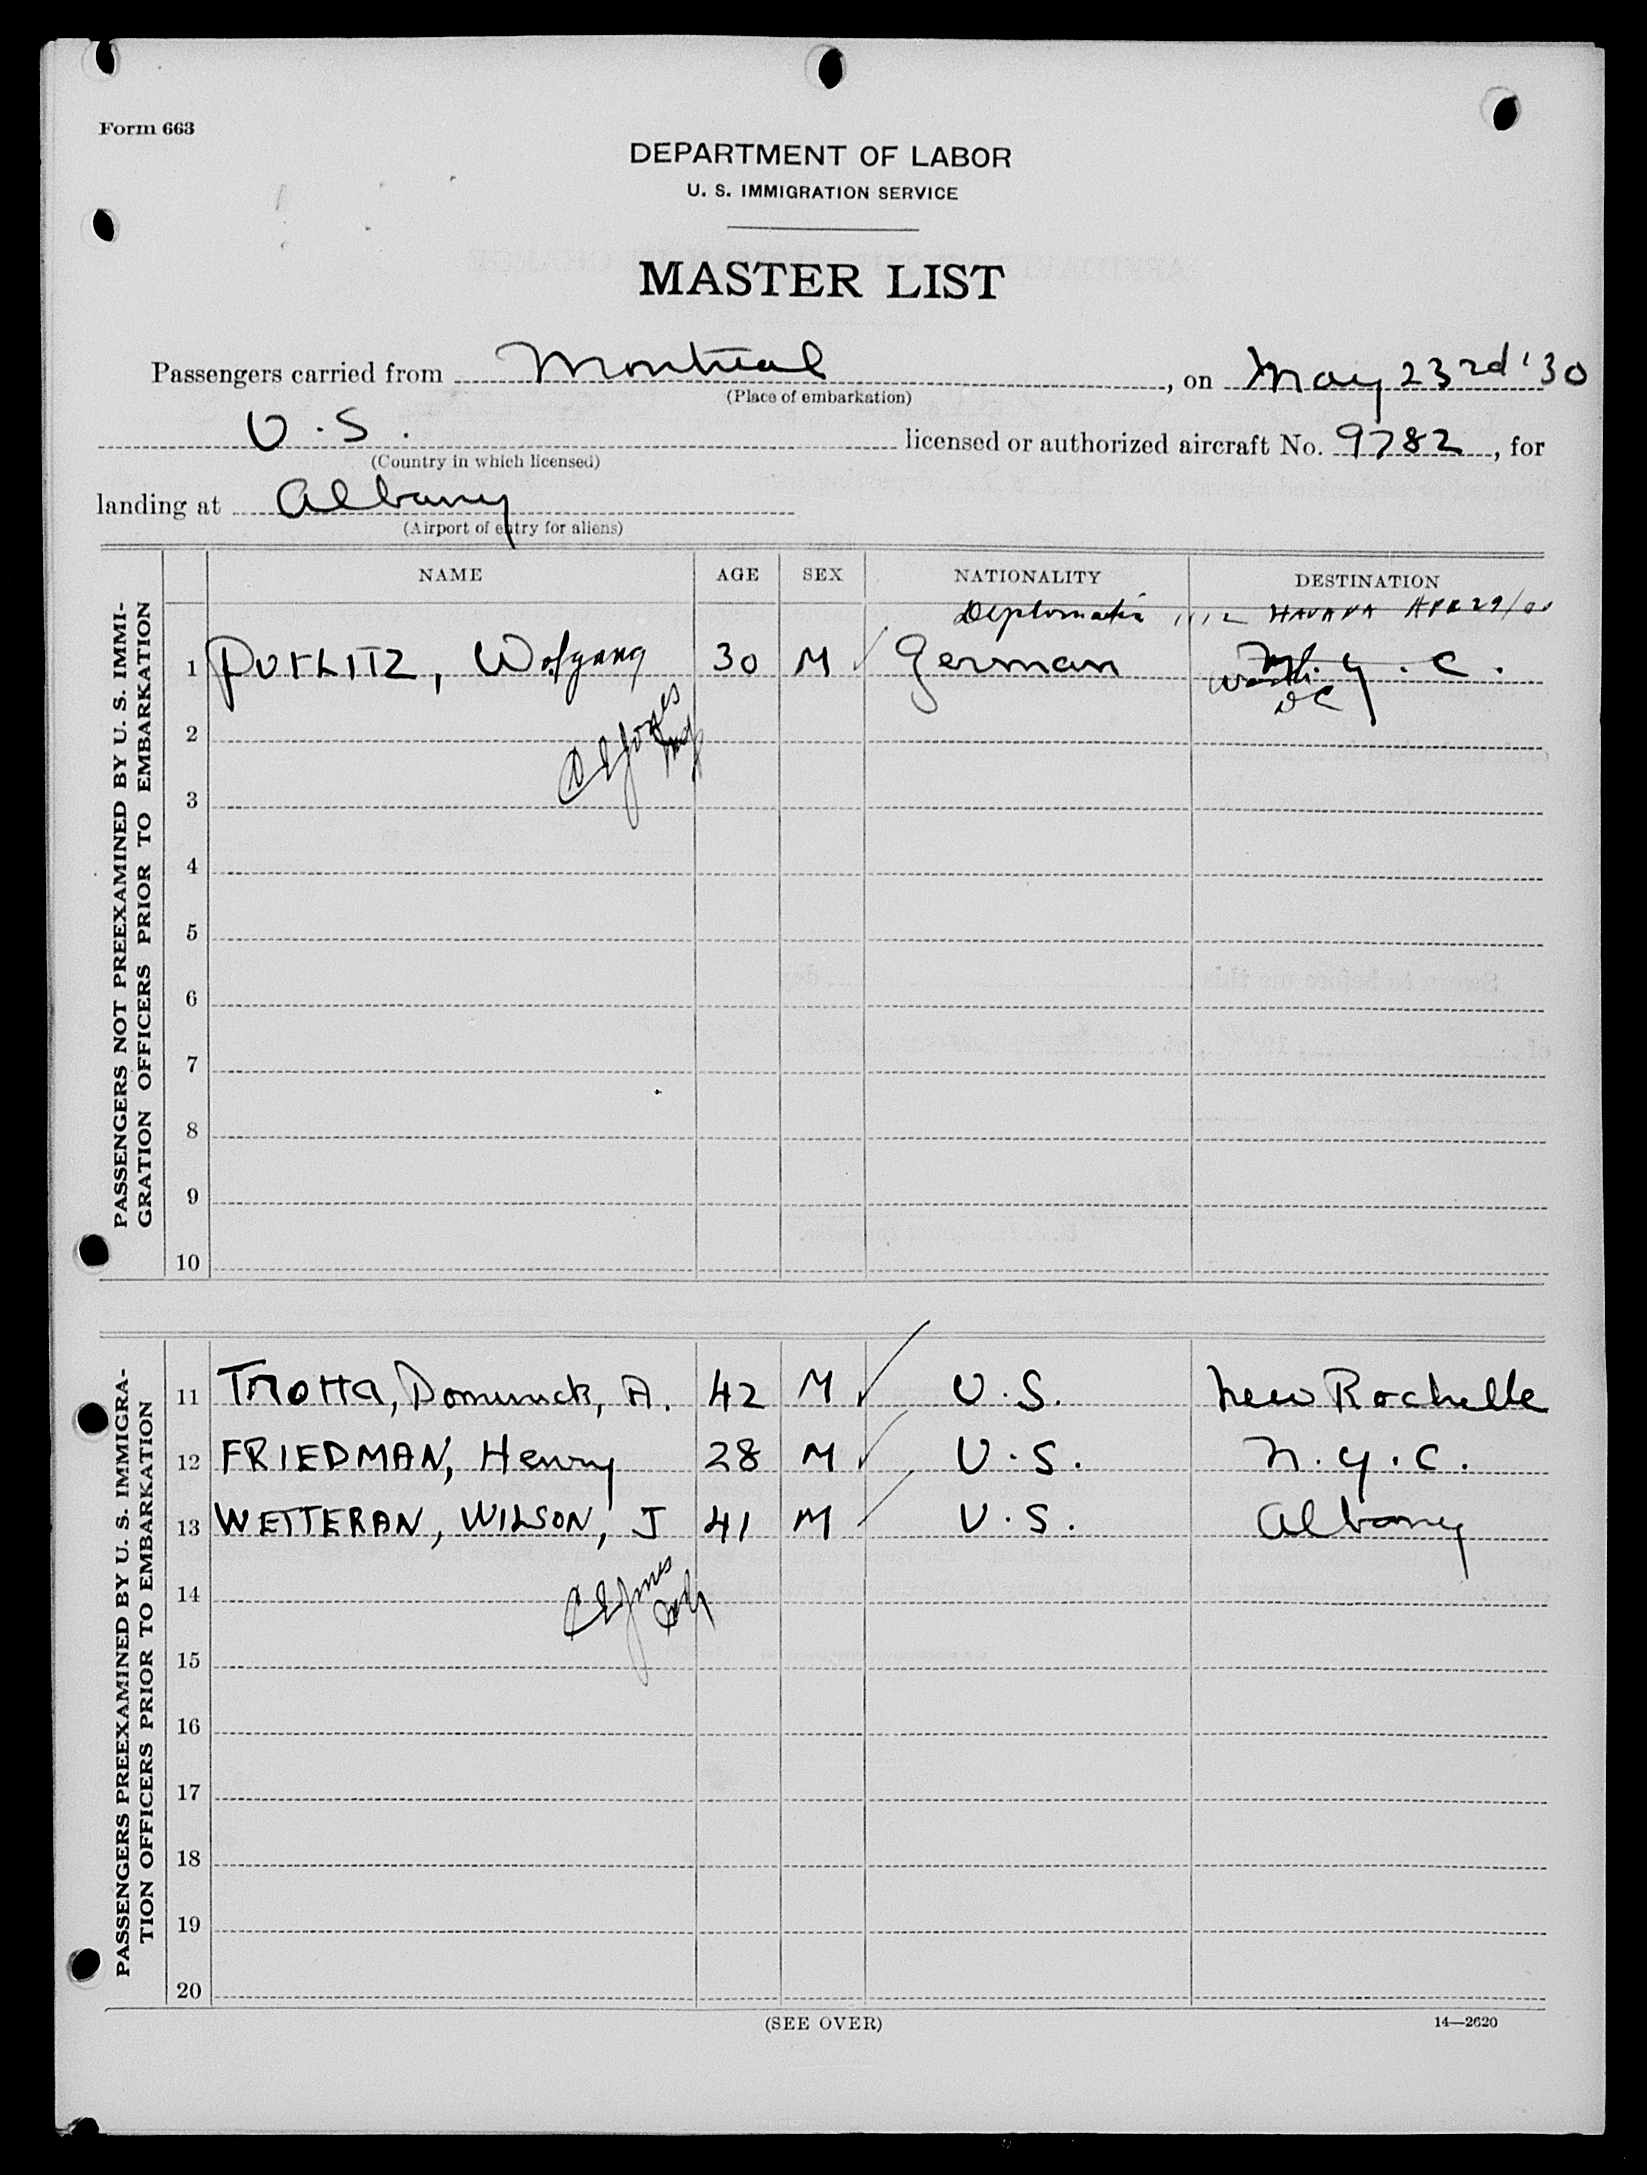 Form 663
DEPARTMENT OF LABOR
U. S. IMMIGRATION SERVICE
MASTER LIST
Passengers carried from Montreal, on May 23rd '30
(Place of embarkation)
U.S. licensed or authorized aircraft No. 9782, for
(Country in which licensed)
landing at Albany
(Airport of entry for aliens)
PASSENGERS NOT PREEXAMINED BY U. S. IMMI-
GRATION OFFICERS PRIOR TO EMBARKATION
NAME AGE SEX NATIONALITY DESTINATION
Diplomatic HAVANA APR 29/
1 PUTLITZ, Wofgang 30 M German N.Y.C.
Wash.
DC
2
CEJones
Insp
3
4
5
6
7
8
9
10
PASSENGERS PREEXAMINED BY U. S. IMMIGRA-
TION OFFICERS PRIOR TO EMBARKATION
11 Trotta, Dominick, A. 42 M U.S. New Rochelle
12 FRIEDMAN, Henry 28 M U.S. N.Y.C.
13 WETTERAN, WILSON, J 41 M U.S. Albany
14 CEJones
15
16
17
18
19
20
(SEE OVER)
14—2620